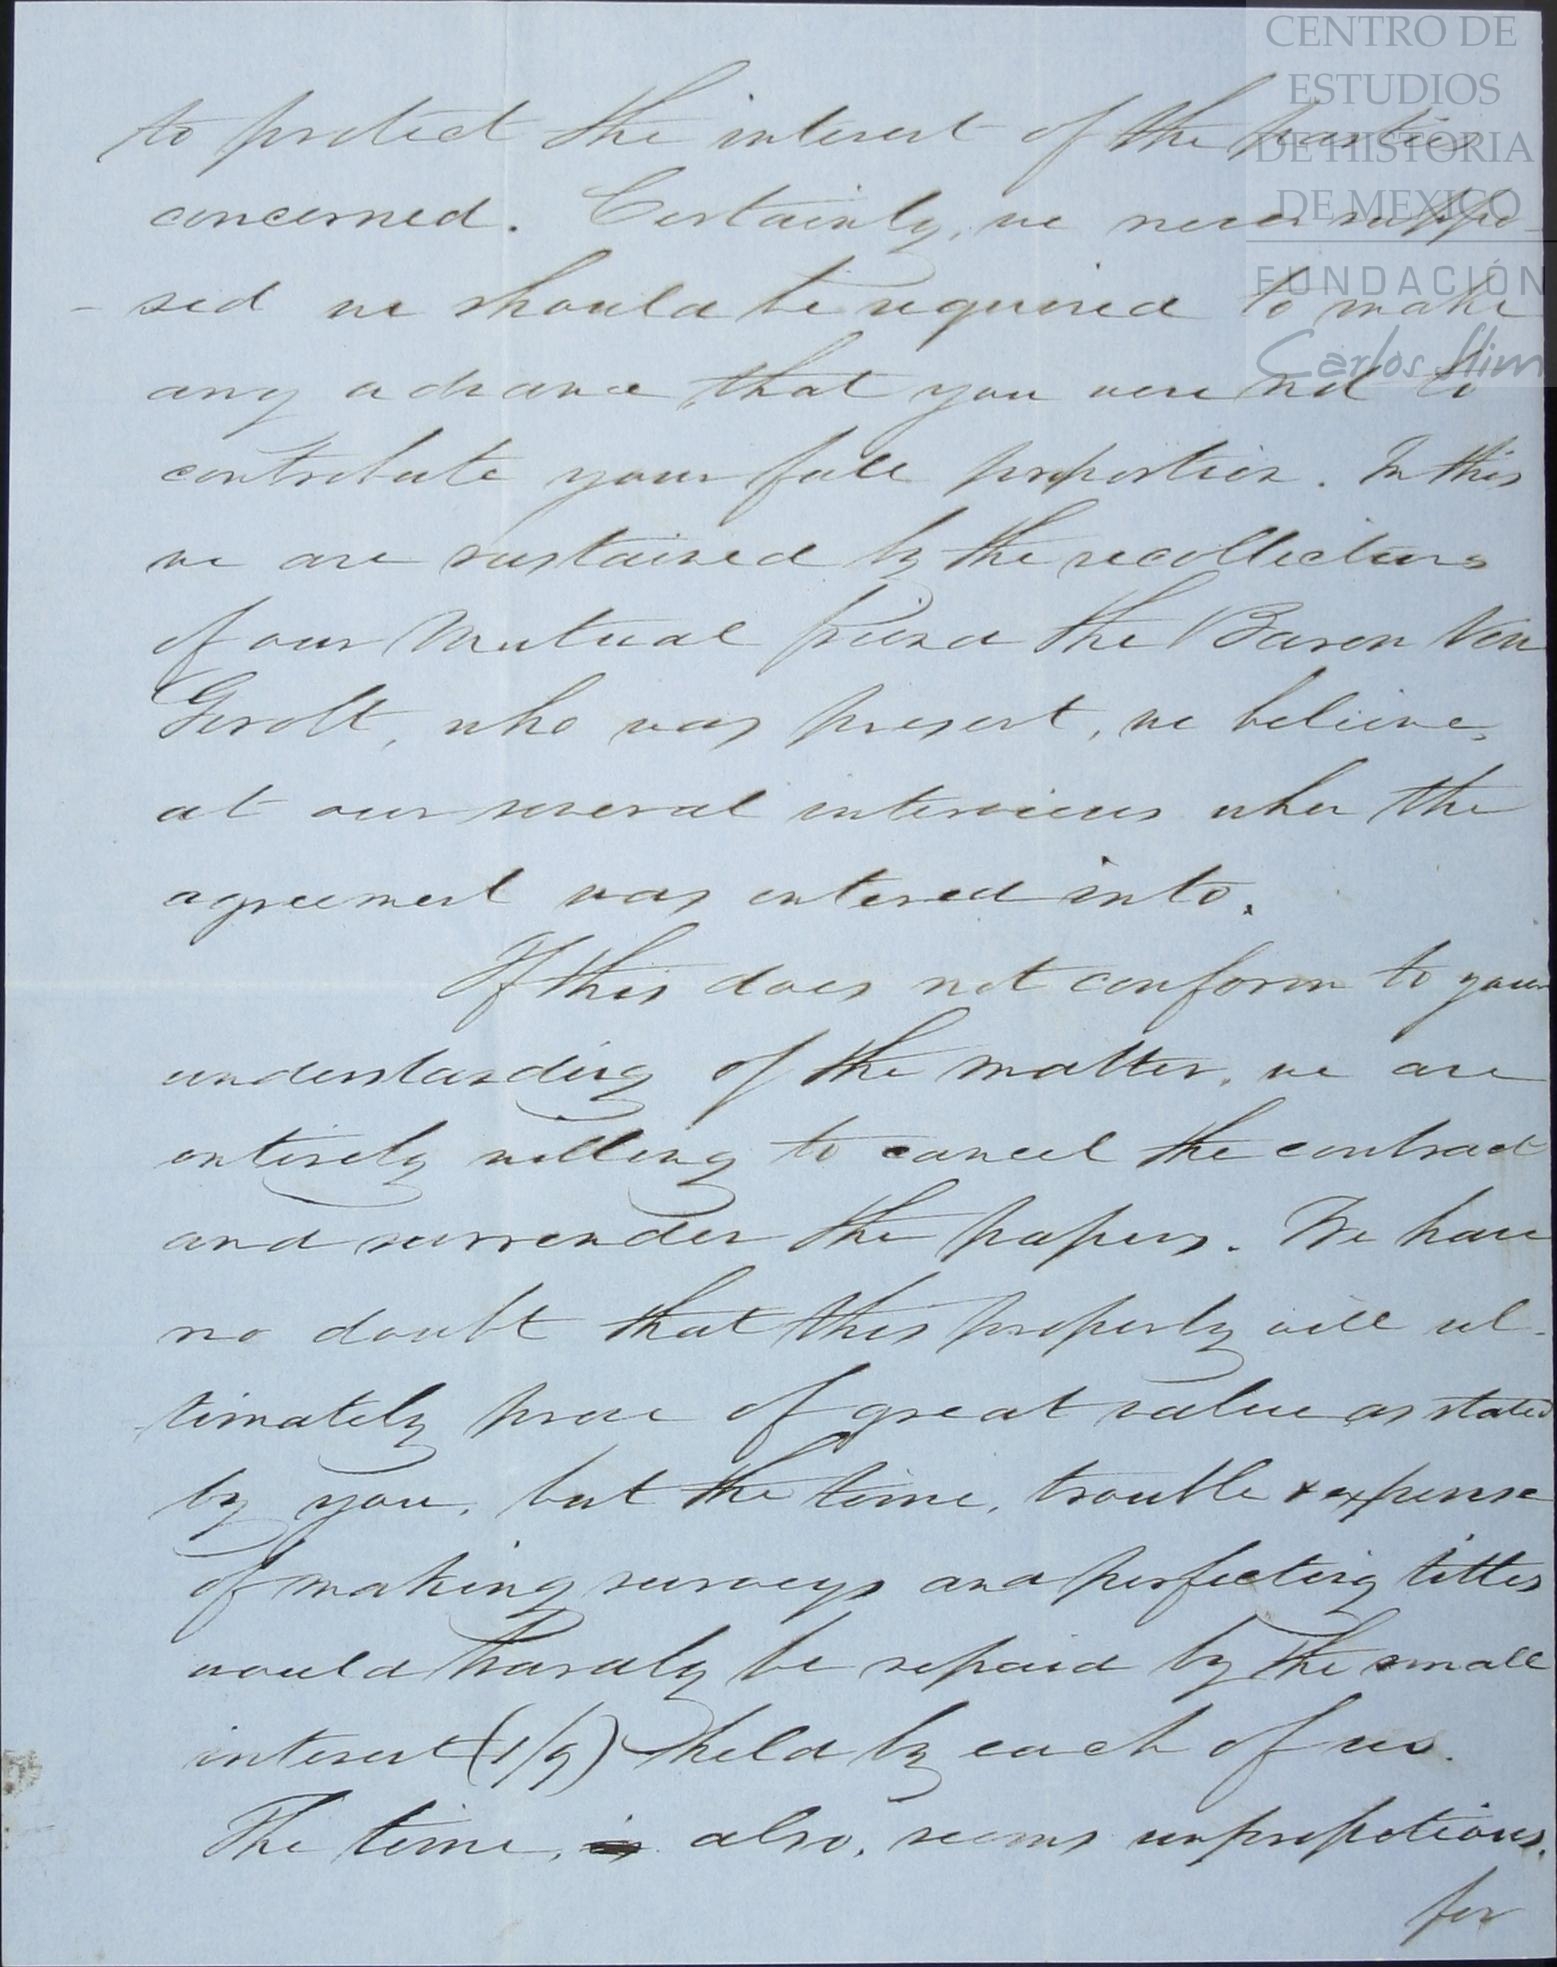 CENTRO DE
ESTUDIOS
DE HISTORIA
DE MEXICO
FUNDACIÓN
Carlos Slim
to protect the interest of the parties
concerned. Certainly, we never suppo-
-sed we should be required to make
any advance that you were not to
contribute your full proportion. In this
we are sustained by the recollections
of our mutual friend the Baron Von
Gerolt, who was present, we believe,
at our several interviews when the
agreement was entered into.
If this does not conform to your
understanding of the matter, we are
entirely willing to cancel the contract
and surrender the papers. We have
no doubt that this property will ul-
timately prove of great value as stated
by you, but the time, trouble & expense
of making surveys and perfecting titles
would hardly be repaid by the small
interest (1/9) held by each of us.
The time, is also, seems unpropotious.
for